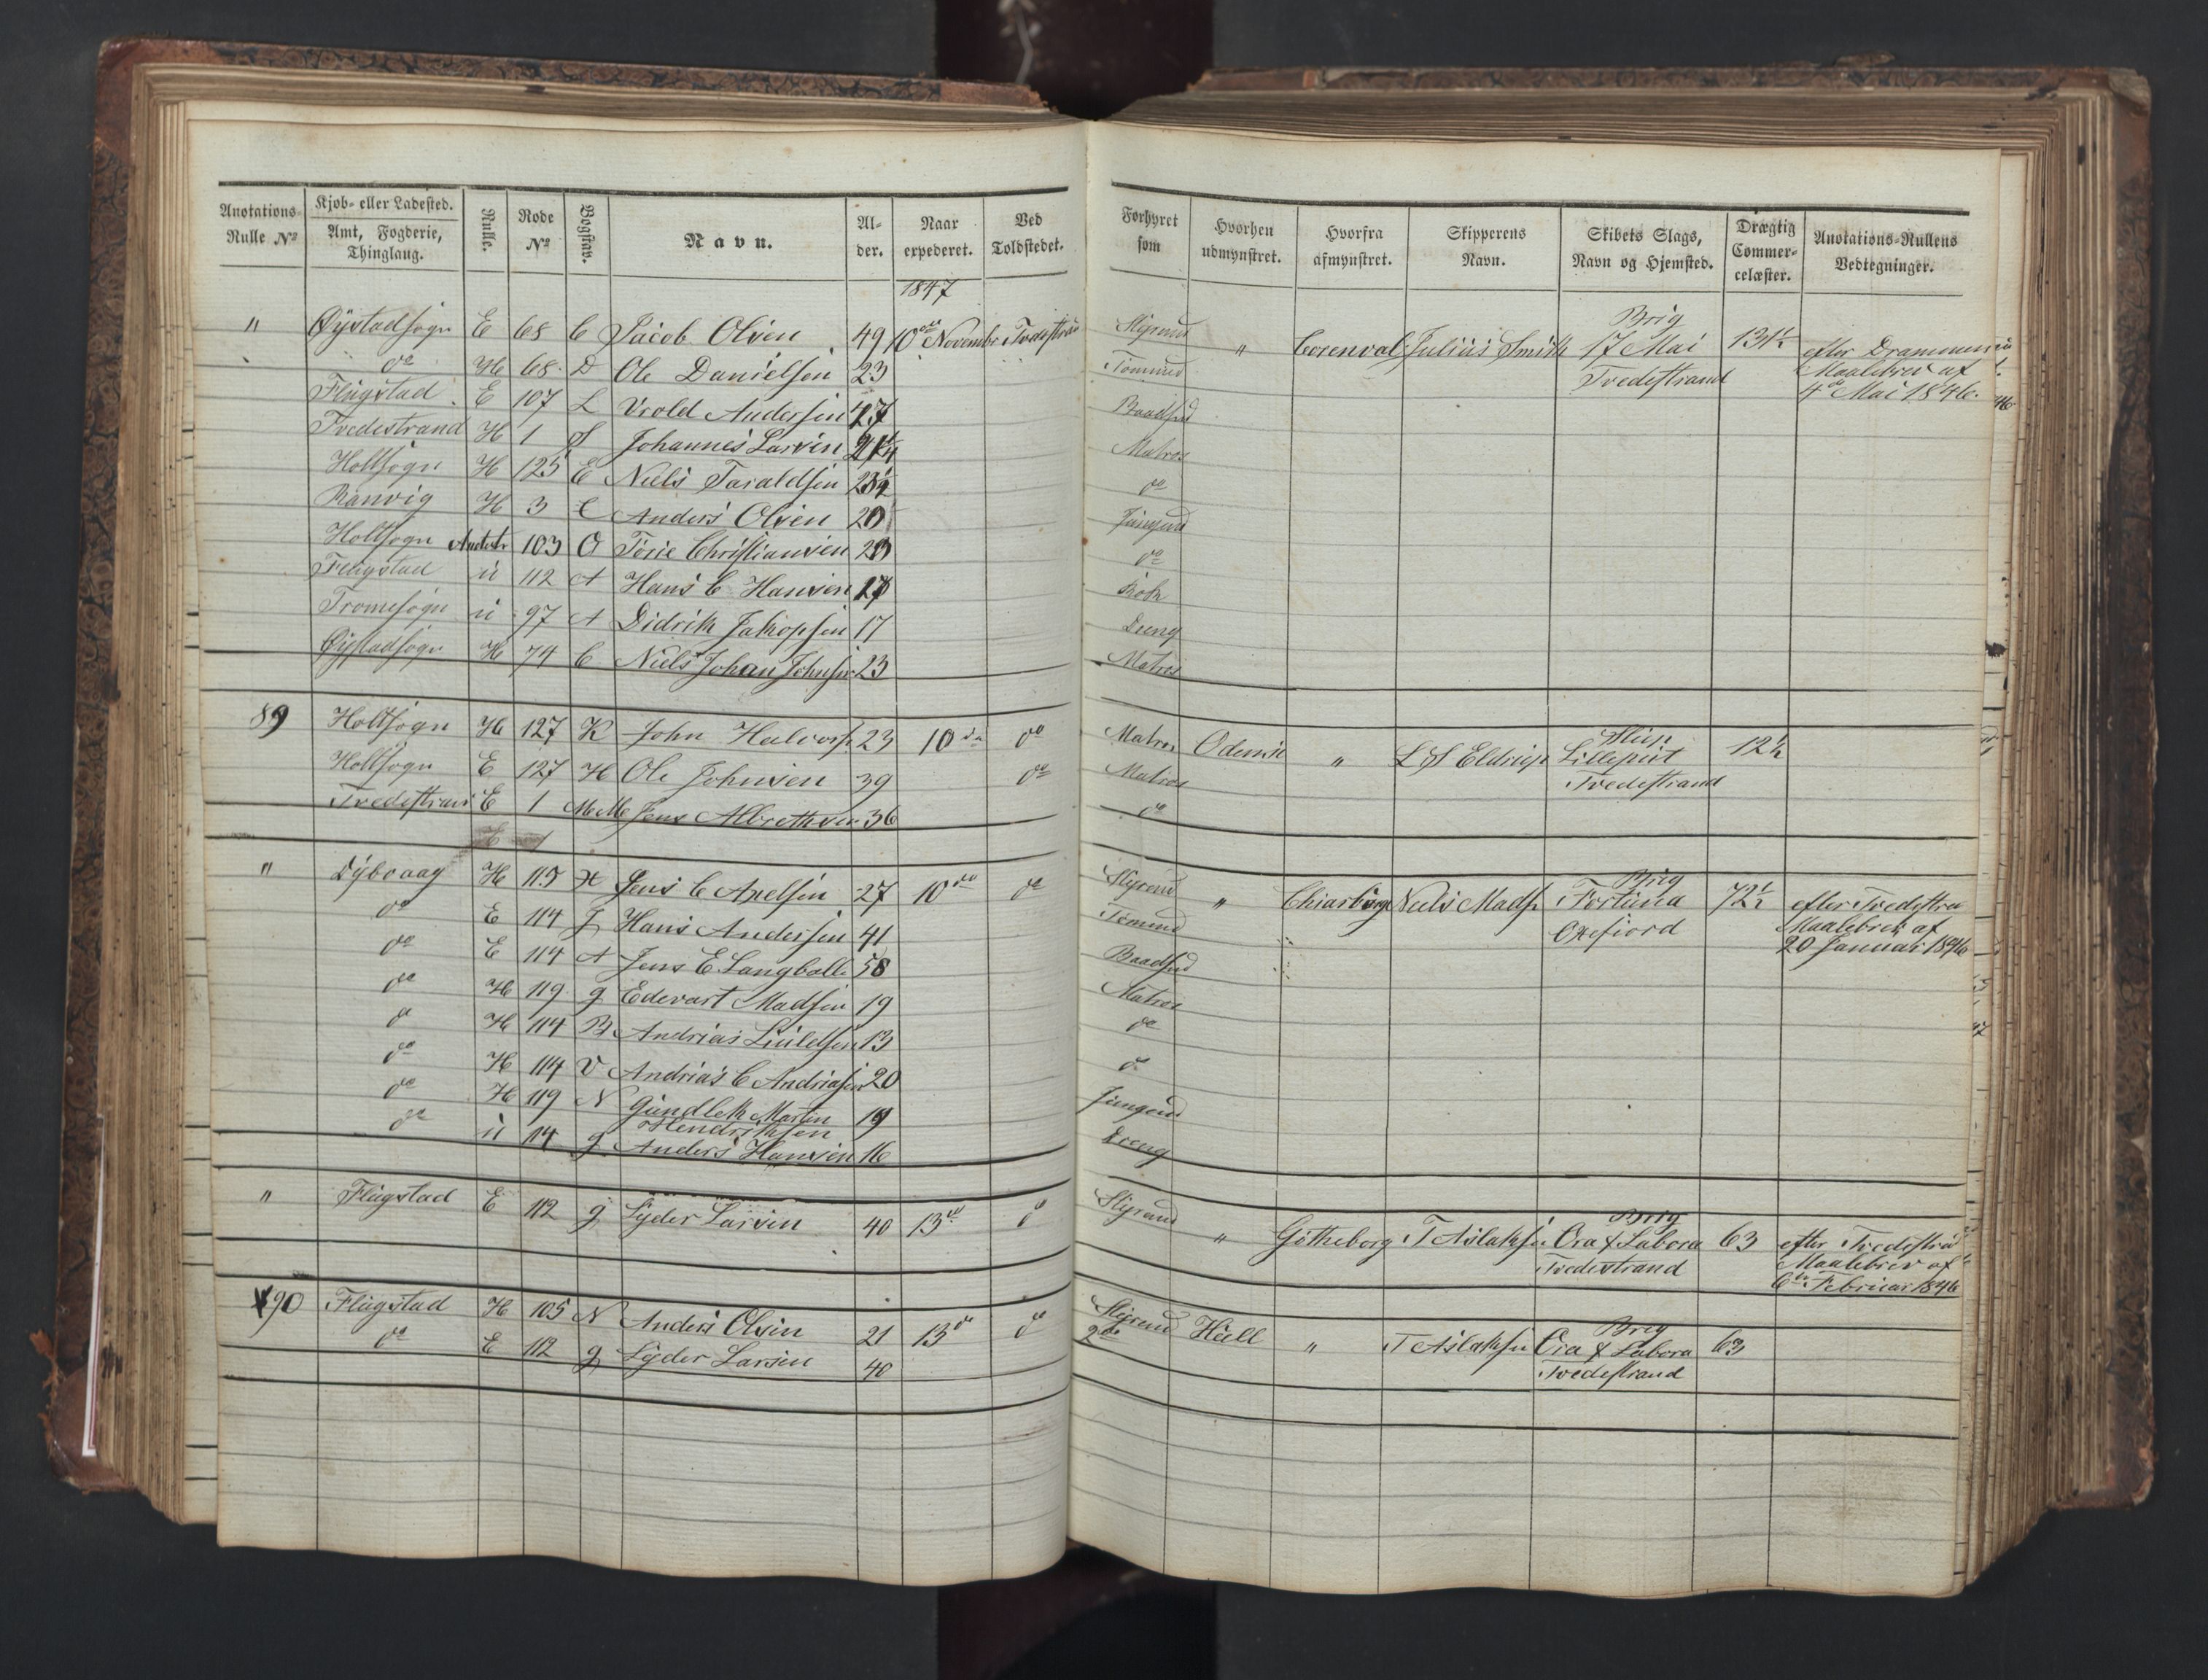 Anotations- Rulle No | Kjøb- eller Ladested. Amt, Fogderie, Thinglaug. | Rulle. | Rode No | Bogstav. | Navn. | Al- der. | Naar expederet. | Ved Toldstedet. | Forhyret som | Hvorhen udmynstret. | Hvorfra afmynstret. | Skipperens Navn. | Skibets Slags, Navn og Hjemsted. | Drægtig Commer- celæster. | Anotations-Rullens Vedtegninger.
1847
" Øystadsogn E 68 C Jacob Olsen 49 10de Novembr Styrmd " Corenval Julius Smith Brig 17 Mai Tvedestrand 131½ efter Drammens Maalebrev af 4de Mai 1846.
do H 68 D Ole Danielsen 23 Tømmd
Flugstad E 107 L Vrold Andersen 47 Baadsmd
Tvedestrand H 1 Johannes Larsen Matros
Holtsogn H 125 E Niels Taraldsen do
Ranvig H 3 C Anders Olsen 20 Jungmd
Holtsogn 103 O Torie Christiansen do
Flugstad u 112 A Hans C Hansen 17 Kok
Tromøsogn u 97 A Didrik Jakopsen 17 Dreng
Øystadsogn H 74 C Niels Johan Johnsen 23 Matros
89 Holtsogn H 127 K John Halvors. 23 10de do Matros Odense " L S Eldrup Slup Lilleput Tvedestrand 12½
Holtsogn E 127 H Ole Johnsen 39 do Matros
Tvedestrand E 1 MM Jens Albrethsen 36 do
" Dybvaag H 115 H Jens C Axelsen 27 10de do Styrmd " Niels Mads. Brig Fortuna Oxefiord 72½ efter Tvedestra Maalebrev af 20 Januar 1846
do E 114 J Hans Andersen 41 Tømmd
do E 114 A Jens E. Langballe 58 Baadsmd
do H 119 g Edevart Madsen 19 Matros
do H 114 B Andrias 13 do
do H 114 V Andrias C Andriasen 20 do
do H 119 N Gundlek Martin Hendriksen 19 Jungmd
do u 114 g Anders Hansen 16 Dreng
" Flugstad E 112 g Syder Larsen 40 13de do Styrmd " Gøtheborg T Aslaksen Brig Ora & Labora Tvedestrand 63 efter Tvedestrad Maalebrev af 6te Februar 1846
90 Flugstad H 105 N Anders Olsen 21 13de do Styrmd Hull " T Aslaksen Brig Ora & Labora Tvedestrand 63
do E 112 g Syder Larsen 40 2de